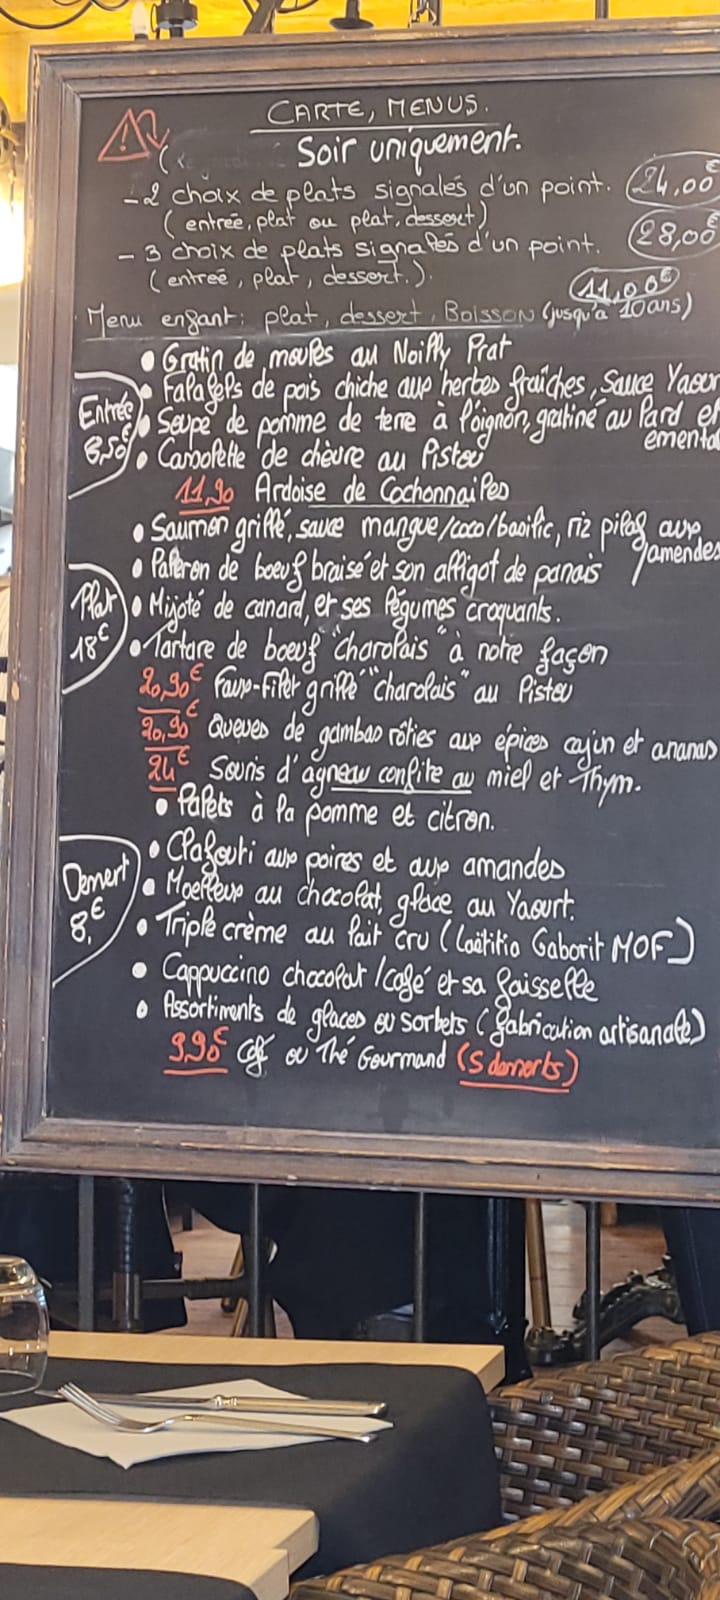 CARTE, MENUS.
Soir uniquement.
- 2 choix de plats signalés d'un point. 24,00€
(entrée, plat ou plat, dessert)
- 3 choix de plats signalés d'un point. 28,00€
(entrée, plat, dessert.).
11,00€
Menu enfant: plat, dessert, Boisson (jusqu'a 10ans)
• Gratin de moules au Noilly Prat
Entrée 8,50€
• Falafels de pois chiche aux herbes fraîches, Sauce Yaour
• Soupe de pomme de terre à l'oignon, gratiné au lard et
emental
• Cassolette de chèvre au Pistou
11,90 Ardoise de Cochonnailles
• Saumon grillé, sauce mangue/coco/basilic, riz pilaf aux
amendes
Plat 18€
• Paleron de boeuf braisé et son alligot de panais
• Mijoté de canard, et ses légumes croquants.
• Tartare de boeuf "charolais" à notre façon
20,90€ Faux-Filet grillé "charolais" au Pistou
20,90€ Queues de gambas rôties aux épices cajun et ananas
24€ Souris d'agneau confite au miel et Thym.
• Palets à la pomme et citron.
Dessert 8,€
• Clafouti aux poires et aux amandes
• Moelleux au chocolat, glace au Yaourt.
• Triple crème au lait cru (Laëtitia Gaborit MOF)
• Cappuccino chocolat/café et sa faisselle
• Assortiments de glaces ou sorbets (fabrication artisanale)
9.90€ Café ou Thé Gourmand (5 desserts)